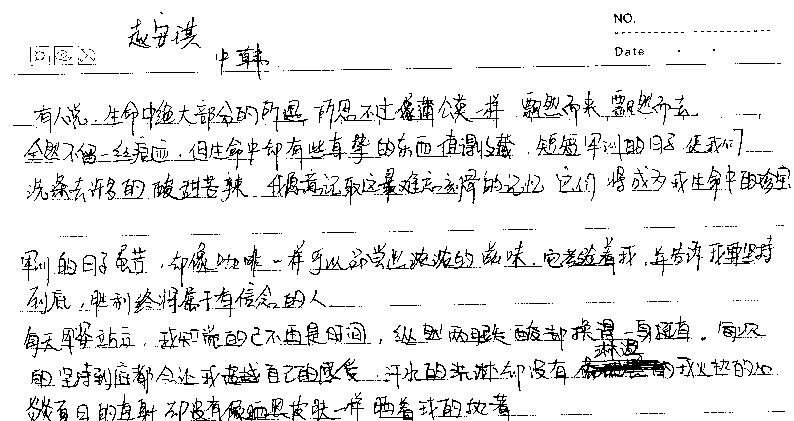 NO.
Date
赵安琪
中韩
有人说,生命中绝大部分的所遇 所思不过像蒲公英一样 飘然而来,飘然而去
全然不留一丝痕迹,但生命中却有些真挚的东西值得收藏,短短军训的日子使我们
洗涤去许多的酸甜苦辣 我愿意记取这最难忘的记忆 它们将成为我生命中的珍宝
军训的日子虽苦,却像咖啡一样可以品尝出浓浓的 味,它考验着我,并告诉我要坚持
到底,胜利终将属于有信念的人
每天早晨站立,我知觉的已不再是时间,纵然两眼 酸却换得一身 。每次
的坚持到底都会让我 越自己的感受 汗水的洗淋却没有淋湿我火热的心
炎夏日的直射却没有像晒黑皮肤一样晒着我的执著